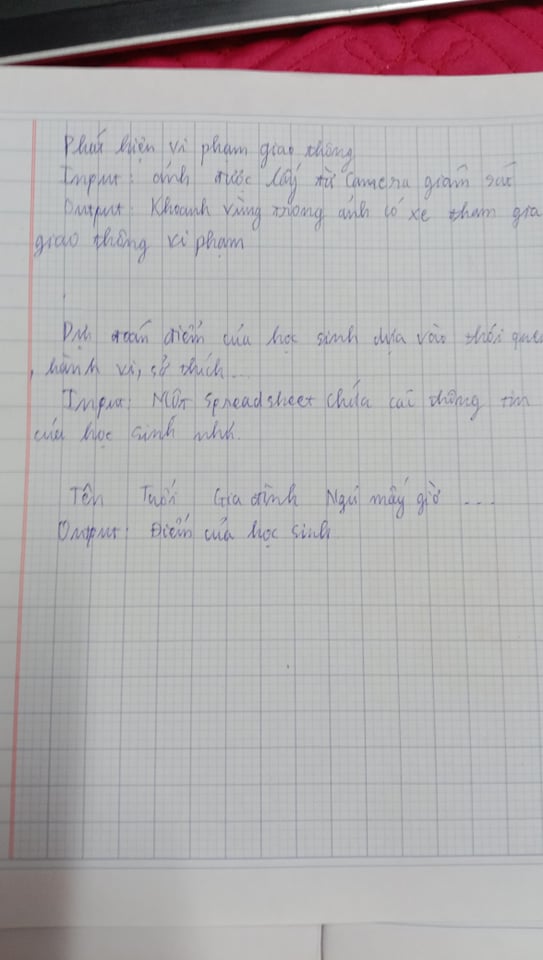 Phát hiện vi phạm giao thông
Input: ảnh được lấy từ camera giám sát
Output: Khoanh vùng trong ảnh có xe tham gia
giao thông vi phạm
Dự toán điểm của học sinh dựa vào thói quen
, hành vi, sở thích...
Input: Một spreadsheet chứa các thông tin
của học sinh như.
Tên Tuổi Gia đình Ngủ mấy giờ ...
Output: Điểm của học sinh